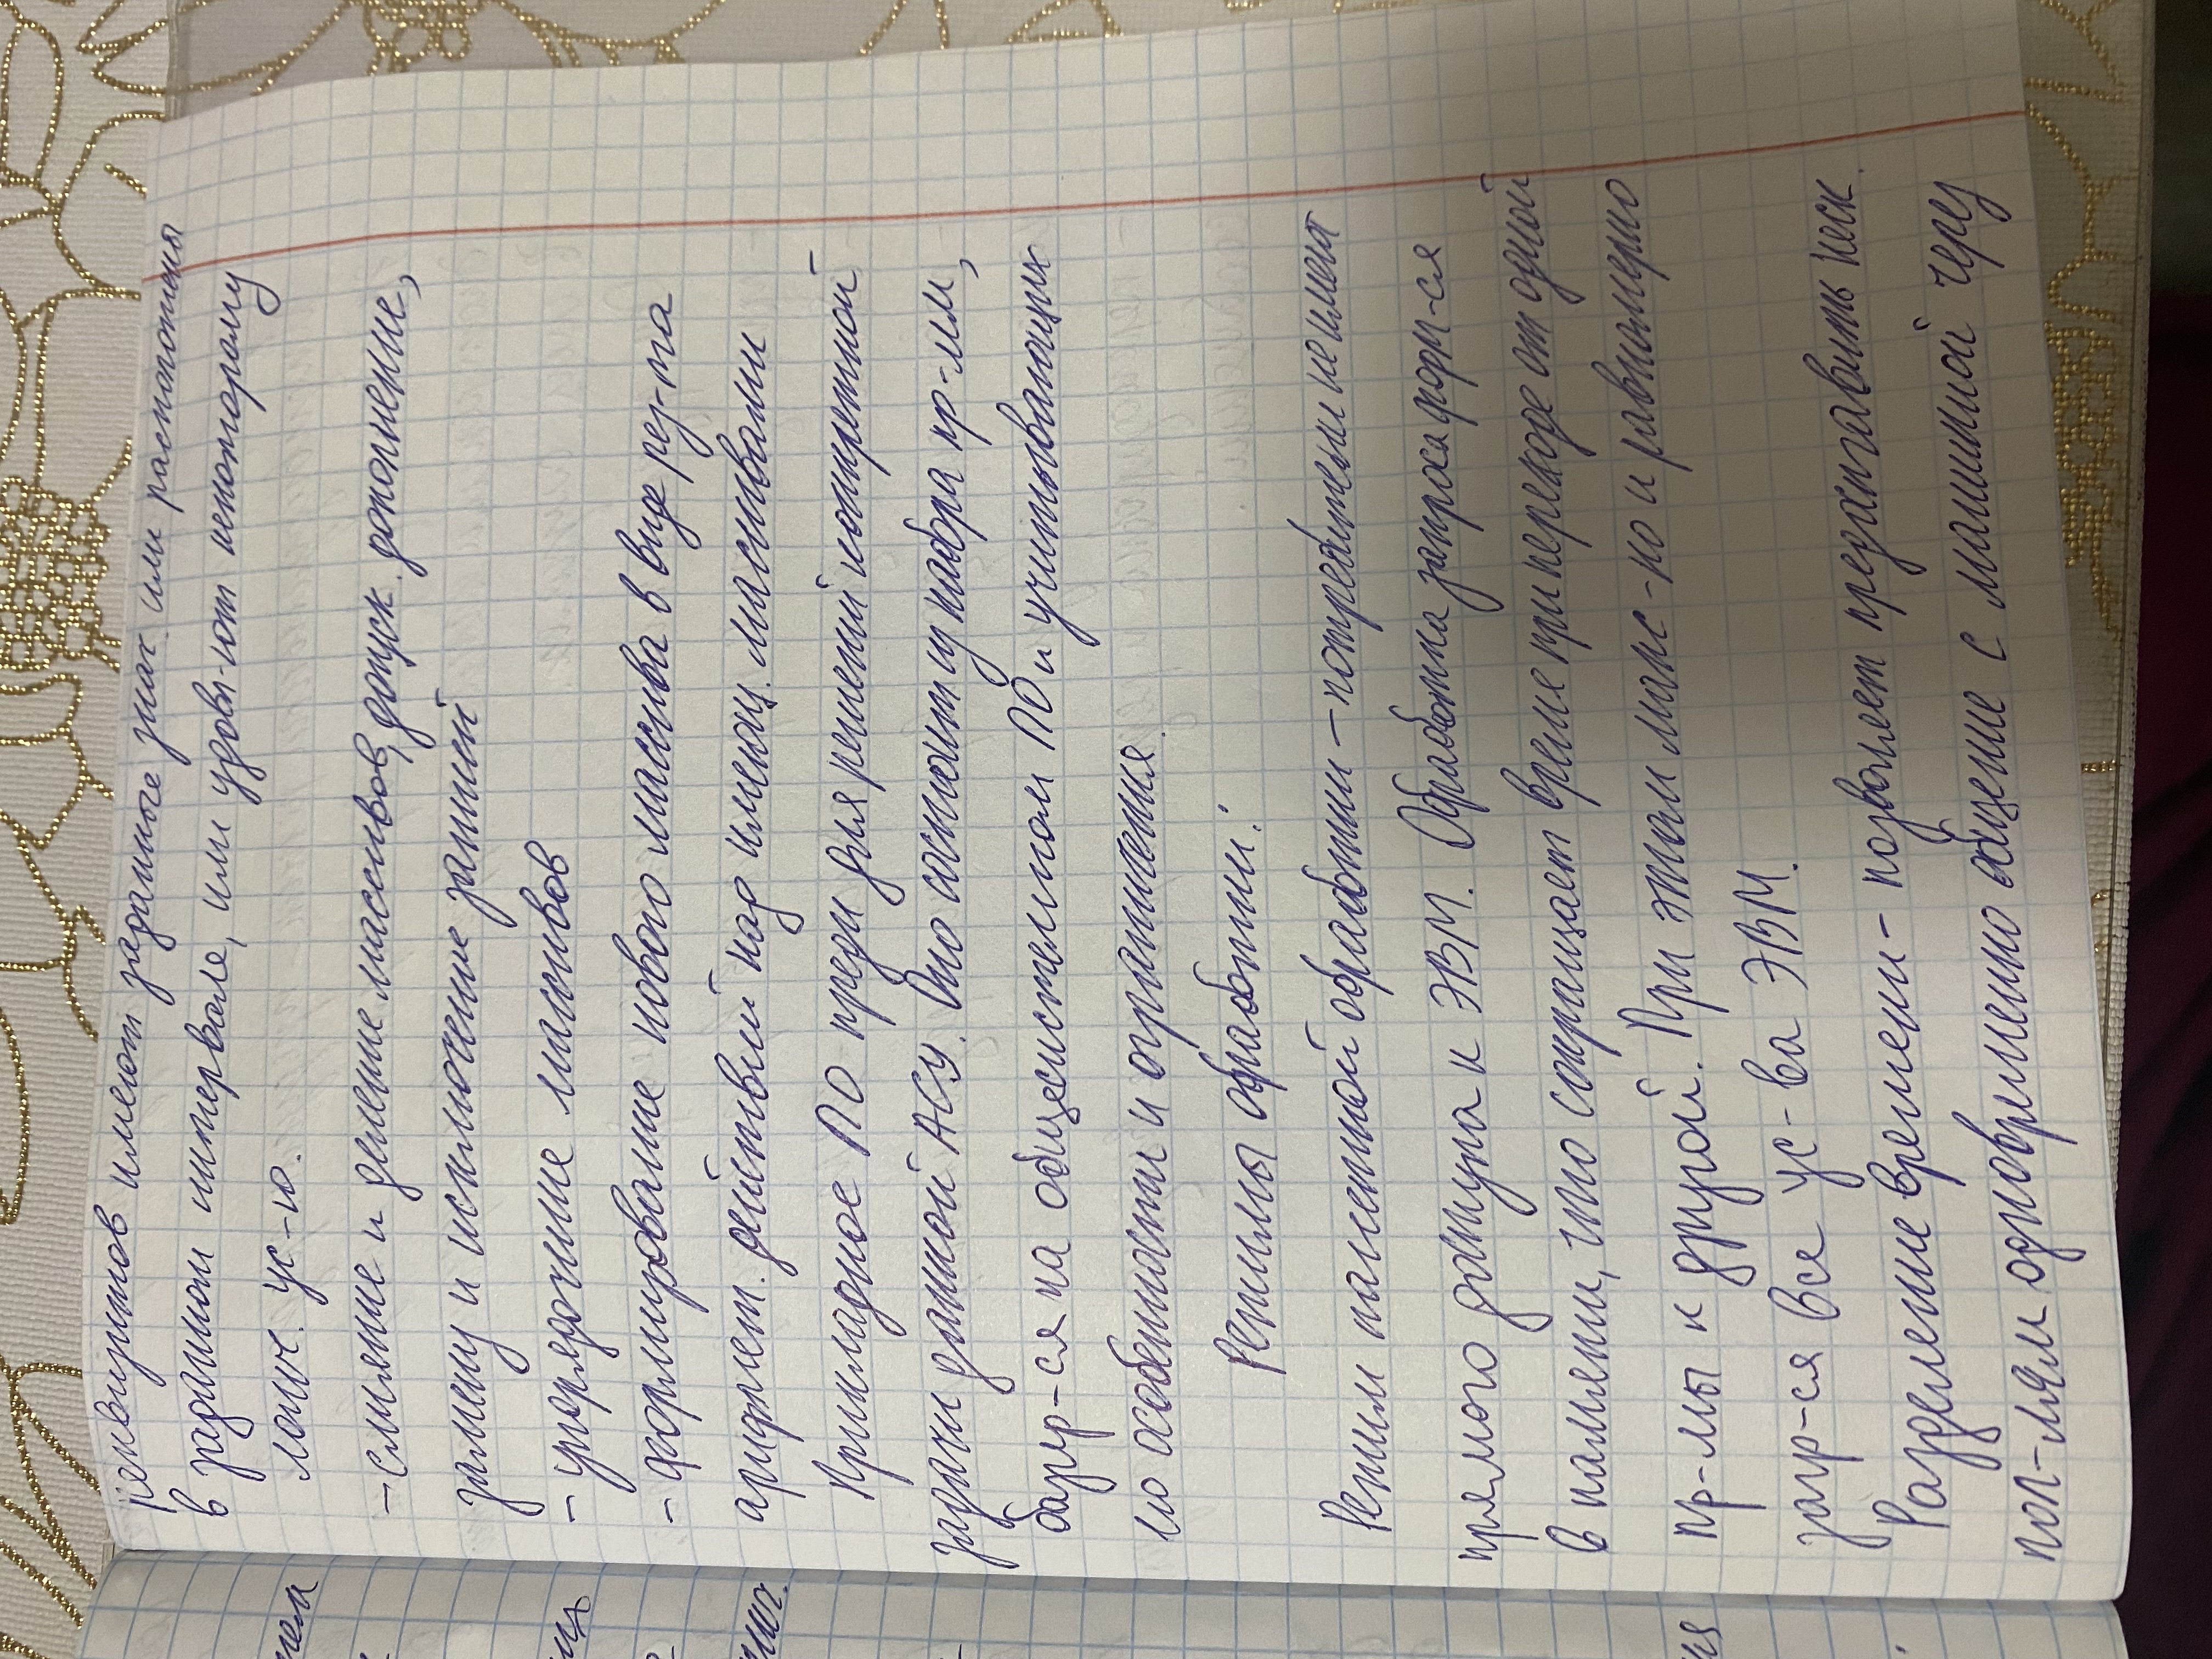 реквизитов имеют заданные знач. или расположены
в заданном интервале, или удовл-ют некоторому
логич. ус-ю.
- слияние и деление массивов, допуск. дополнение,
замену и исключение записей
- упорядочение массивов
- формирование нового массива в виде рез-та
арифмет. действий над имеющ. массивами
Прикладное ПО предн для решений конкретной
задачи данной АСУ. Оно состоит из набора пр-мм,
базир-ся на общесистемном ПО и учитывающих
его особенности и ограничения.
Режимы обработки:
Режим пакетной обработки - потребители не имеют
прямого доступа к ЭВМ. Обработка запроса форм-ся
в памяти, что сокращает время при переходе от одной
пр-мы к другой. При этом макс-но и равномерно
загр-ся все ус-ва ЭВМ.
Разделение времени - позволяет предоставить неск.
пол-лям одновременно общение с машиной через